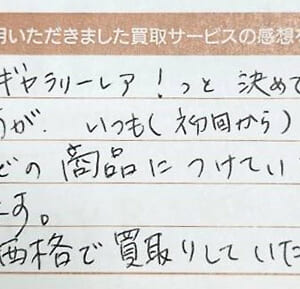 用いただきました買取サービスの感想を
ギャラリーレア！っと 決めて
うが、いつも(初回から)
どの商品につけてい
ます。
価格で買取りしていた